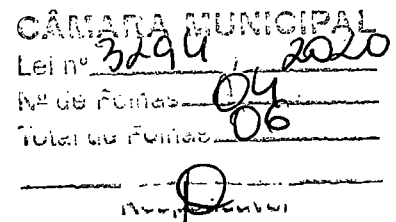 CÂMARA MUNICIPAL
Lei nº 3294 / 2020
Nº de Folhas 04
Total de Folhas 06
Responsável